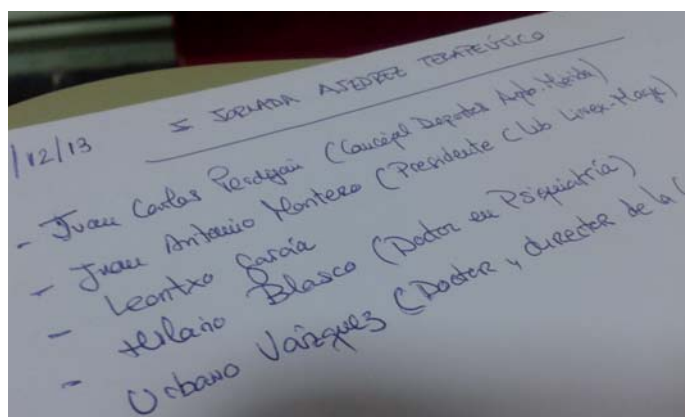 /12/13
I JORNADA AJEDREZ TERAPEÚTICO
- Juan Carlos Perdigón (Concejal Deportes Ayto. Mérida)
- Juan Antonio Montero (Presidente Club Linex-Magic)
- Leontxo García
- Hilario Blasco (Doctor en Psiquiatría)
- Urbano Vázquez (Doctor y director de la (